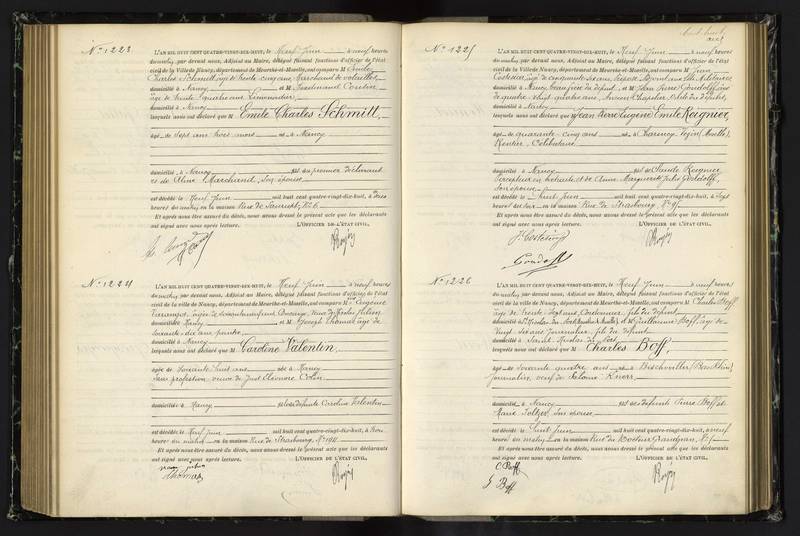 N° 1223
L'AN MIL HUIT CENT QUATRE-VINGT-DIX-HUIT, le Neuf Juin à neuf heures
du matin, par devant nous, Adjoint au Maire, délégué faisant fonctions d'officier de l'état
civil de la Ville de Nancy, département de Meurthe-et-Moselle, ont comparu M Emile
Charles Schmitt, âgé de trente cinq ans, Marchand de volailles,
domicilié à Nancy et M Ferdinand
âgé de trente quatre ans
domicilié à Nancy
lesquels nous ont déclaré que M Emile Charles Schmitt,
âgé de sept ans trois mois né à Nancy
domicilié à Nancy fils du premier déclarant
et de Aline Marchand, son épouse
est décédé le Neuf Juin mil huit cent quatre-vingt-dix-huit, à
heures du matin en la maison Rue de N° 26
Et après nous être assuré du décès, nous avons dressé le présent acte que les déclarants
ont signé avec nous après lecture. L'OFFICIER DE L'ÉTAT CIVIL,
N° 1224
L'AN MIL HUIT CENT QUATRE-VINGT-DIX-HUIT, le Neuf Juin à neuf heures
du matin, par devant nous, Adjoint au Maire, délégué faisant fonctions d'officier de l'état
civil de la ville de Nancy, département de Meurthe-et-Moselle, ont comparu M
âgée de cinquante
domiciliée Nancy et M Joseph Thomas âgé de
soixante dix ans
domicilié à Nancy
lesquels nous ont déclaré que M Caroline Valentin
âgée de soixante huit ans née à Nancy
Sans profession veuve de Just Eléonore Colin
domiciliée à Nancy fille de défunte Caroline Valentin
est décédée le Neuf Juin mil huit cent quatre-vingt-dix-huit, à
heures du matin en la maison Rue de Strasbourg, N° 194
Et après nous être assuré du décès, nous avons dressé le présent acte que les déclarants
ont signé avec nous après lecture. L'OFFICIER DE L'ÉTAT CIVIL,
Thomas
N° 1225
L'AN MIL HUIT CENT QUATRE-VINGT-DIX-HUIT, le Neuf Juin à neuf heures
du matin, par devant nous, Adjoint au Maire, délégué faisant fonctions d'officier de l'état
civil de la Ville de Nancy, département de Meurthe-et-Moselle, ont comparu M Jean
âgé de cinquante six ans,
domicilié à Nancy beau frère du défunt et M Jean Pierre
de quatre vingt quatre ans, Ancien Chapelier, oncle du défunt,
domicilié à Nancy
lesquels nous ont déclaré que M Jean Pierre Eugène Emile Reignier,
âgé de quarante cinq ans né à (Moselle),
Rentier, Célibataire
domicilié à Nancy fils de Claude Reignier
Percepteur en retraite et de Anne Marguerite Julie
son épouse
est décédé le huit Juin mil huit cent quatre-vingt-dix-huit, à sept
heures du soir en la maison Rue de Strasbourg N° 91
Et après nous être assuré du décès, nous avons dressé le présent acte que les déclarants
ont signé avec nous après lecture. L'OFFICIER DE L'ÉTAT CIVIL,
N° 1226
L'AN MIL HUIT CENT QUATRE-VINGT-DIX-HUIT, le Neuf Juin à neuf heures
du matin, par devant nous, Adjoint au Maire, délégué faisant fonctions d'officier de l'état
civil de la Ville de Nancy, département de Meurthe-et-Moselle, ont comparu M Charles Boff
âgé de trente sept ans, Cordonnier, fils du défunt
domicilié à St Nicolas du Port (Meurthe et Moselle) et M Guillaume Boff, âgé de
vingt six ans Journalier, fils du défunt
domicilié à Saint Nicolas du Port
lesquels nous ont déclaré que M Charles Boff,
âgé de soixante quatre ans né à Bischwiller (Bas Rhin),
Journalier, veuf de Salomé Knerr
domicilié à Nancy fils de défunts Pierre Boff et
Marie son épouse
est décédé le huit Juin mil huit cent quatre-vingt-dix-huit, à neuf
heures du matin en la maison Rue du Docteur Grandjean, N°
Et après nous être assuré du décès, nous avons dressé le présent acte que les déclarants
ont signé avec nous après lecture. L'OFFICIER DE L'ÉTAT CIVIL,
C Boff
G Boff